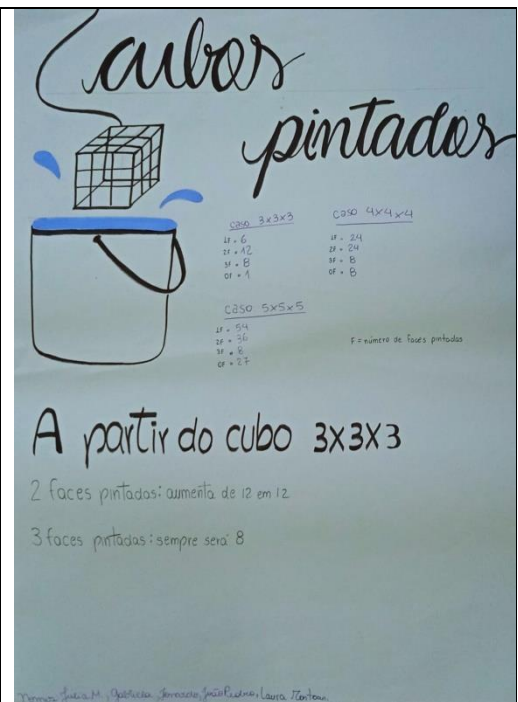 Cubos
pintados
caso 3x3x3
1F = 6
2F = 12
3F = 8
0F = 1
caso 4x4x4
1F = 24
2F = 24
3F = 8
0F = 8
caso 5x5x5
1F = 54
2F = 36
3F = 8
0F = 27
F = número de faces pintadas
A partir do cubo 3x3x3
2 faces pintadas: aumenta de 12 em 12
3 faces pintadas: sempre será 8
Julia M, Gabriela, João Pedro, Laura